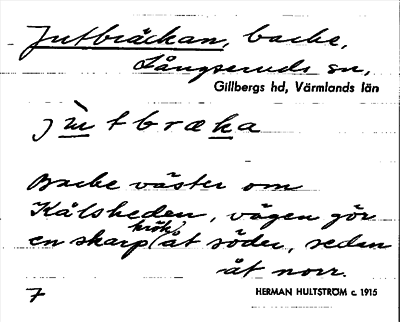 Jutbräckan, backe,
Långseruds sn,
Gillbergs hd, Värmlands län
jùtbræka
Backe väster om
Kålsheden, vägen gör
en skarp (krök) åt söder, sedan
åt norr.
7 HERMAN HULTSTRÖM c. 1915